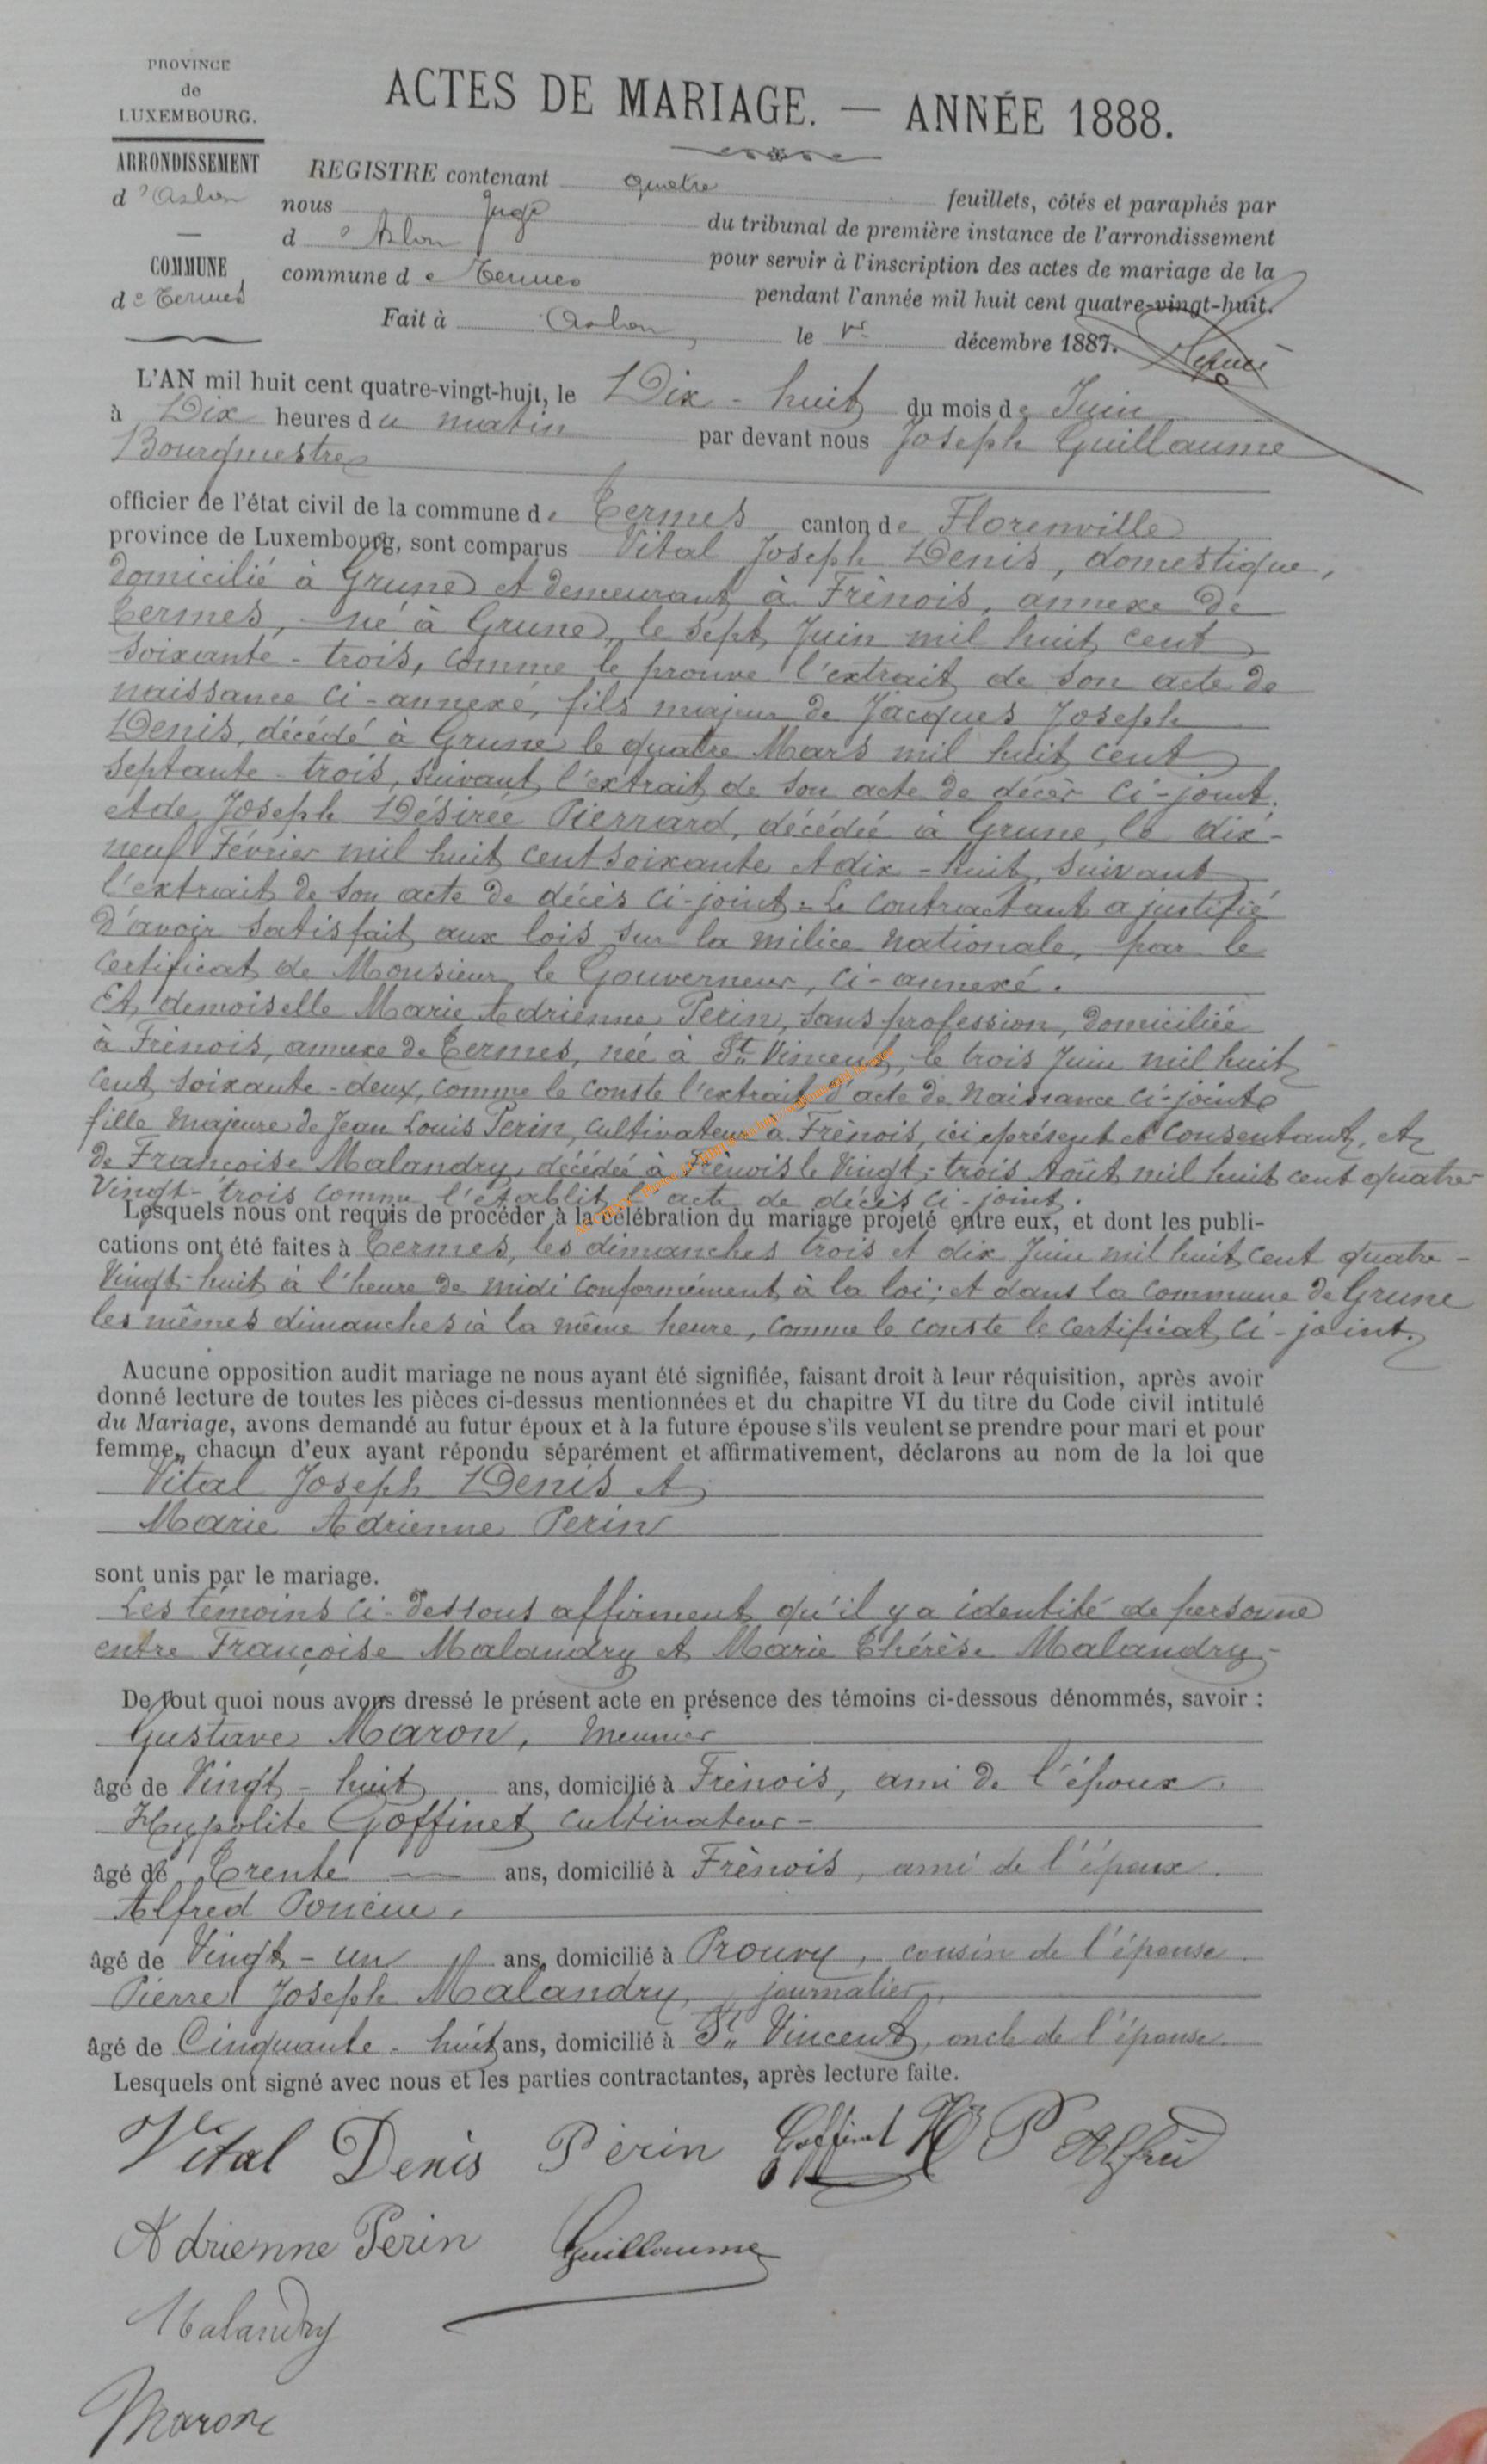 PROVINCE
de
LUXEMBOURG.
ARRONDISSEMENT
d'Arlon
COMMUNE
de Termes
ACTES DE MARIAGE. — ANNÉE 1888.
REGISTRE contenant quatre feuillets, côtés et paraphés par
nous Juge du tribunal de première instance de l'arrondissement
d'Arlon pour servir à l'inscription des actes de mariage de la
commune de Termes pendant l'année mil huit cent quatre-vingt-huit.
Fait à Arlon, le 1er décembre 1887.
L'AN mil huit cent quatre-vingt-huit, le Dix-huit du mois de Juin
à Dix heures du matin par devant nous Joseph Guillaume
Bourgmestre
officier de l'état civil de la commune de Termes canton de Florenville
province de Luxembourg, sont comparus Vital Joseph Denis, domestique,
domicilié à Grune et demeurant à Frènois, annexe de
Termes, né à Grune, le sept Juin mil huit cent
soixante-trois, comme le prouve l'extrait de son acte de
naissance ci-annexé, fils majeur de Jacques Joseph
Denis, décédé à Grune le quatre Mars mil huit cent
septante-trois, suivant l'extrait de son acte de décès ci-joint.
et de Joseph Désirée Pierrard, décédée à Grune, le dix-
neuf Février mil huit cent soixante et dix-huit, suivant
l'extrait de son acte de décès ci-joint. Le contractant a justifié
d'avoir satisfait aux lois sur la milice nationale, par le
certificat de Monsieur le Gouverneur, ci-annexé.
Et demoiselle Marie Adrienne Perin, sans profession, domiciliée
à Frènois, annexe de Termes, née à St Vincent, le trois Juin mil huit
cent soixante-deux, comme le conste l'extrait d'acte de naissance ci-jointe
fille majeure de Jean Louis Perin, cultivateur à Frènois, ici présent et consentant, et
de Françoise Malandry, décédée à Frènois le vingt-trois Août mil huit cent quatre-
vingt-trois comme l'établit l'acte de décès ci-joint.
Lesquels nous ont requis de procéder à la célébration du mariage projeté entre eux, et dont les publi-
cations ont été faites à Termes, les dimanches trois et dix Juin mil huit cent quatre-
vingt-huit à l'heure de midi conformément à la loi; et dans la commune de Grune
les mêmes dimanches à la même heure, comme le conste le certificat ci-joint.
Aucune opposition audit mariage ne nous ayant été signifiée, faisant droit à leur réquisition, après avoir
donné lecture de toutes les pièces ci-dessus mentionnées et du chapitre VI du titre du Code civil intitulé
du Mariage, avons demandé au futur époux et à la future épouse s'ils veulent se prendre pour mari et pour
femme, chacun d'eux ayant répondu séparément et affirmativement, déclarons au nom de la loi que
Vital Joseph Denis et
Marie Adrienne Perin
sont unis par le mariage.
Les témoins ci-dessous affirment qu'il y a identité de personne
entre Françoise Malandry et Marie Thérèse Malandry.
De tout quoi nous avons dressé le présent acte en présence des témoins ci-dessous dénommés, savoir :
Gustave Maron, meunier
âgé de Vingt-huit ans, domicilié à Frènois, ami de l'époux.
Hypolite Goffinet cultivateur
âgé de Trente ans, domicilié à Frènois, ami de l'époux.
Alfred Poncin,
âgé de Vingt-un ans, domicilié à Prouvy, cousin de l'épouse.
Pierre Joseph Malandry, journalier,
âgé de Cinquante-huit ans, domicilié à St Vincent, oncle de l'épouse.
Lesquels ont signé avec nous et les parties contractantes, après lecture faite.
Vital Denis Périn Goffinet H P Alfred
Adrienne Perin Guillaume
Malandry
Maron